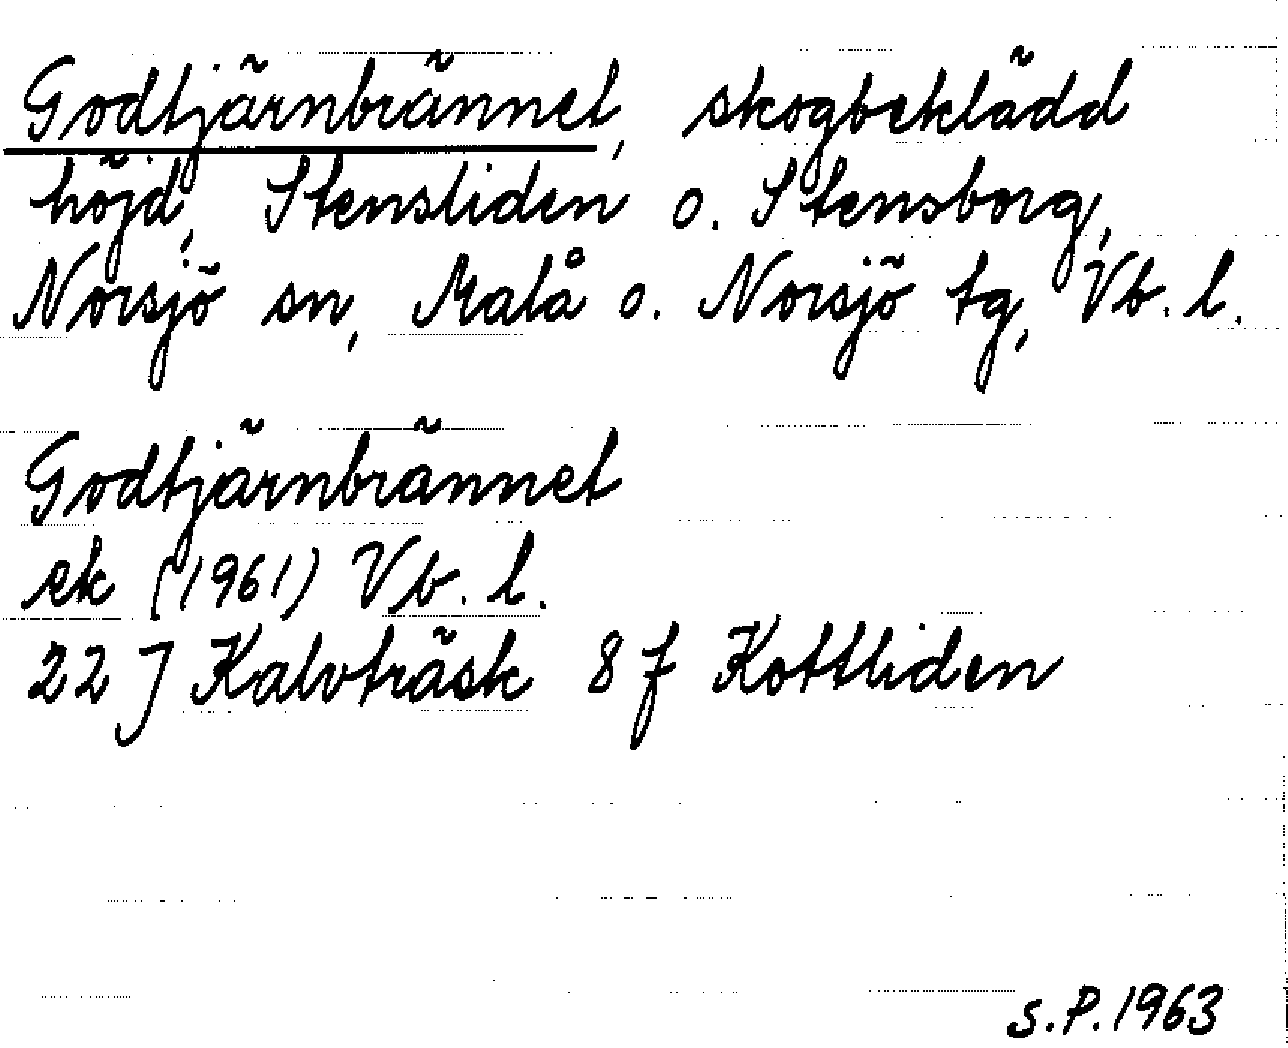 Godtjärnbrännet, skogbeklädd
höjd, Stensliden o. Stensborg,
Norsjö sn, Malå o. Norsjö tg, Vb. l.
Godtjärnbrännet
ek (1961) Vb. l.
22 J Kalvträsk 8 f Kottliden
S.P. 1963